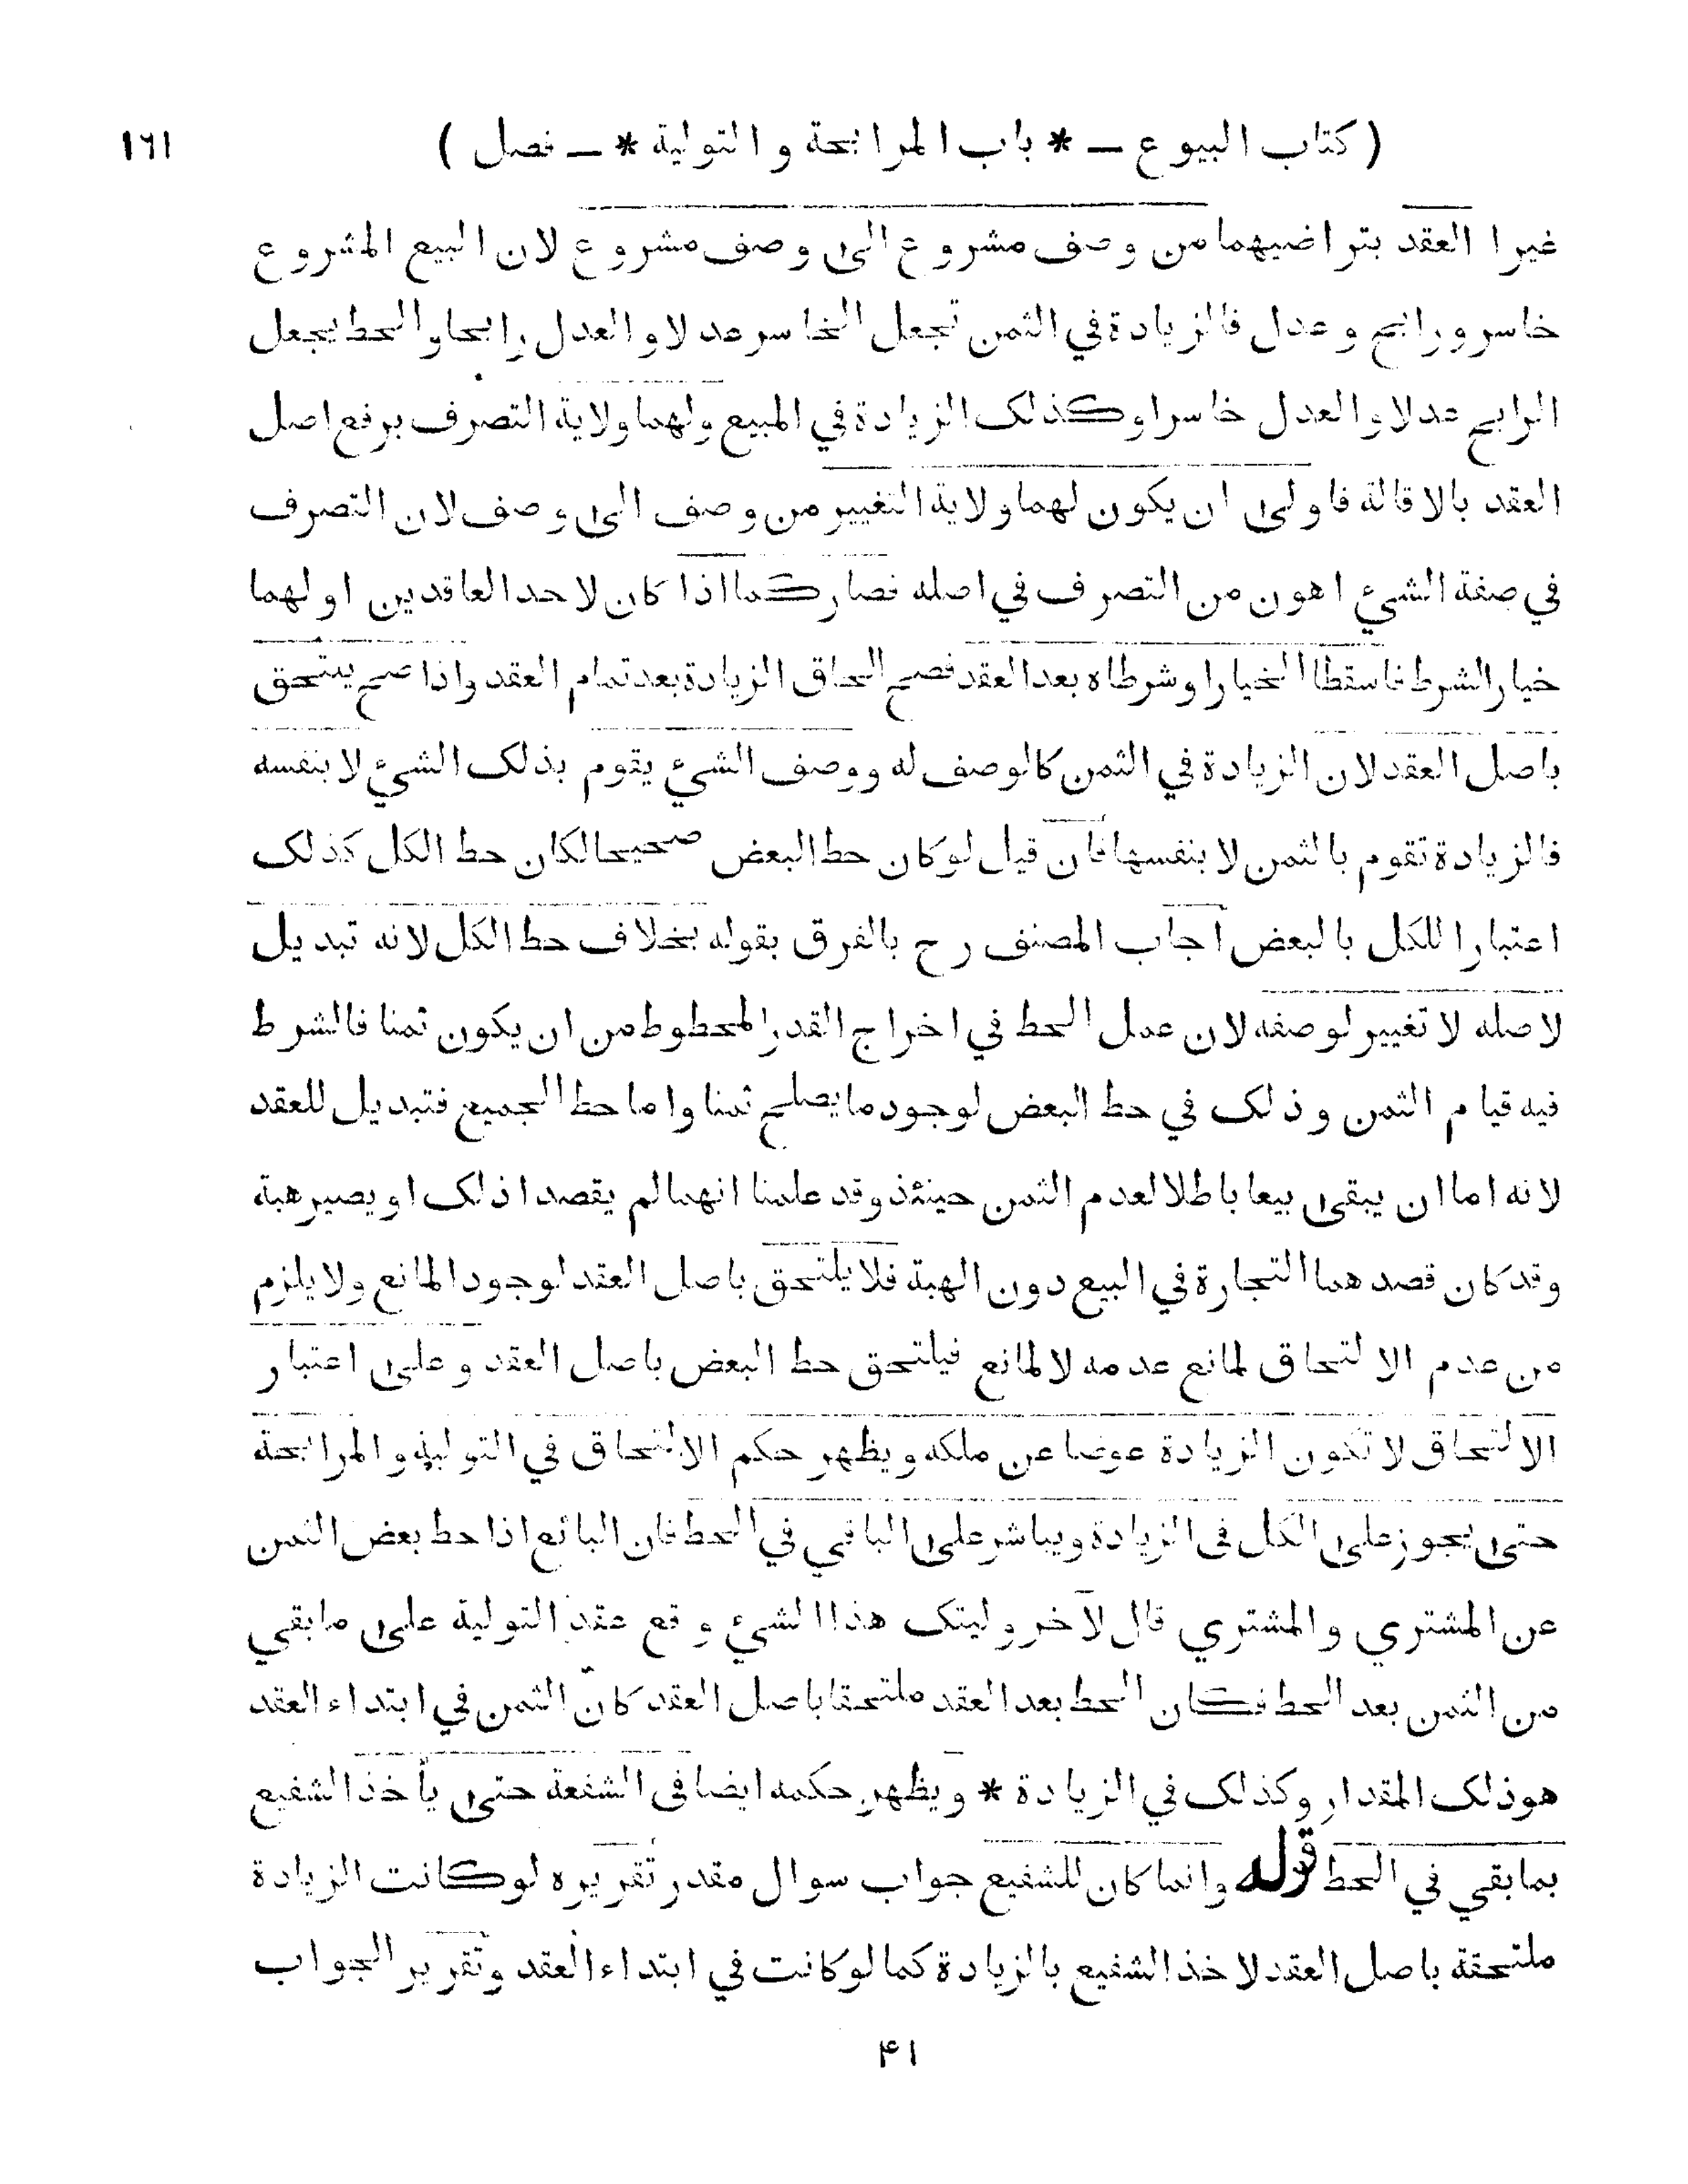 ( كتاب البيوع ـ * باب المرابحة والتولية * ـ فصل )
١٦١
غيرا العقد بتراضيهما من وصف مشروع الى وصف مشروع لان البيع المشروع
خاسر ورابح وعدل فالزيادة في الثمن تجعل الخاسر عدلا والعدل رابحا والحط يجعل
الرابح عدلا والعدل خاسرا وكذلك الزيادة في المبيع ولهما ولاية التصرف برفع اصل
العقد بالاقالة فاولى ان يكون لهما ولاية التغيير من وصف الى وصف لان التصرف
في صفة الشيء اهون من التصرف في اصله فصار كما اذا كان لاحد العاقدين او لهما
خيار الشرط فاسقطا الخيار او شرطاه بعد العقد فصح الحاق الزيادة بعد تمام العقد واذا صح يلتحق
باصل العقد لان الزيادة في الثمن كالوصف له ووصف الشيء يقوم بذلك الشيء لا بنفسه
فالزيادة تقوم بالثمن لا بنفسها فان قيل لو كان حط البعض صحيحا لكان حط الكل كذلك
اعتبارا للكل بالبعض اجاب المصنف رح بالفرق بقوله بخلاف حط الكل لانه تبديل
لاصله لا تغيير لوصفه لان عمل الحط في اخراج القدر المحطوط من ان يكون ثمنا فالشرط
فيه قيام الثمن وذلك في حط البعض لوجود ما يصلح ثمنا واما حط الجميع فتبديل للعقد
لانه اما ان يبقى بيعا باطلا لعدم الثمن حينئذ وقد علمنا انهما لم يقصدا ذلك او يصير هبة
وقد كان قصدهما التجارة في البيع دون الهبة فلا يلتحق باصل العقد لوجود المانع ولا يلزم
من عدم الالتحاق لمانع عدمه لا لمانع فيلتحق حط البعض باصل العقد وعلى اعتبار
الالتحاق لا تكون الزيادة عوضا عن ملكه ويظهر حكم الالتحاق في التولية والمرابحة
حتى يجوز على الكل في الزيادة ويباشر على الباقي في الحط فان البائع اذا حط بعض الثمن
عن المشتري والمشتري قال لآخر وليتك هذا الشيء وقع عقد التولية على ما بقي
من الثمن بعد الحط فكان الحط بعد العقد ملتحقا باصل العقد كانّ الثمن في ابتداء العقد
هو ذلك المقدار وكذلك في الزيادة * ويظهر حكمه ايضا في الشفعة حتى يأخذ الشفيع
بما بقي في الحط قوله وانما كان للشفيع جواب سوال مقدر تقريره لو كانت الزيادة
ملتحقة باصل العقد لاخذ الشفيع بالزيادة كما لو كانت في ابتداء العقد وتقرير الجواب
۴۱